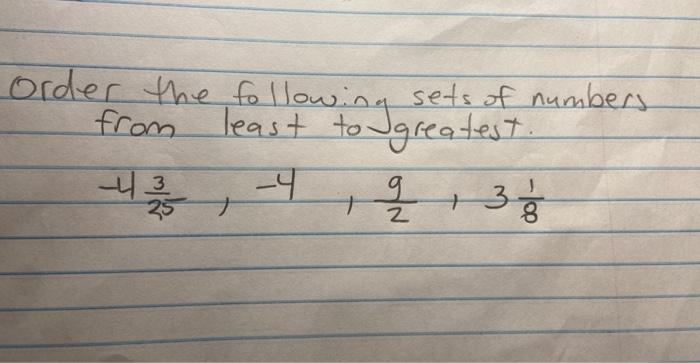 Order the following sets of numbers
from least to greatest.
-4 3/25 , -4 , 9/2 , 3 1/8